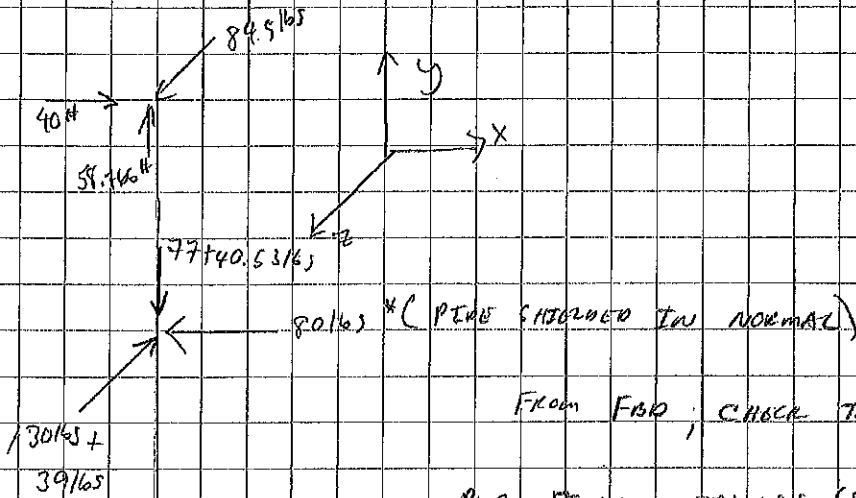 84.5 lbs
y
40#
X
58.766#
z
77+40.53 lbs
80 lbs *( PIPE SHIELDED IN NORMAL)
FROM FBD ; CHECK
130 lbs +
39 lbs